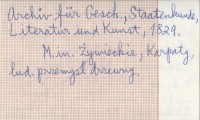 Archiv für Gesch., Staatenkunde,
Literatur und Kunst, 1829.
M. in. Żywieckie, Karpaty,
lud. przemysł drzewny.